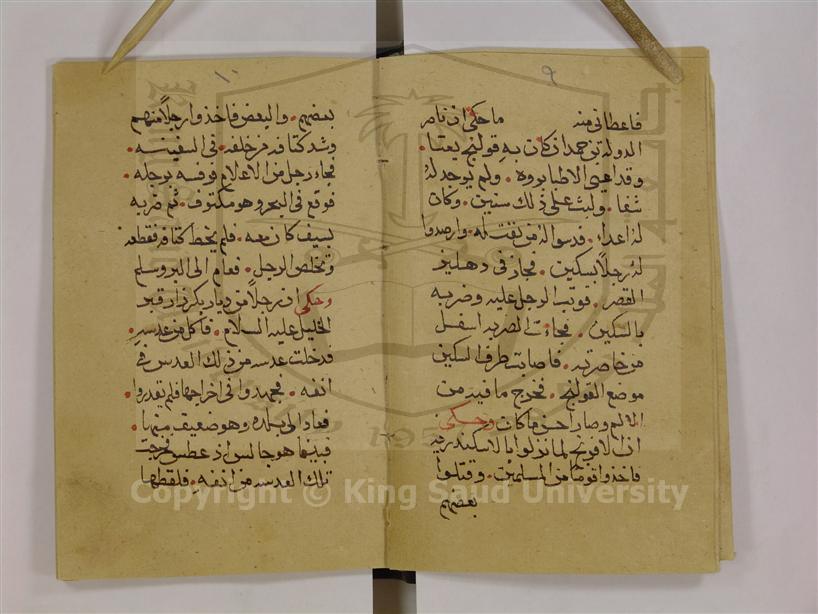 ٩
فاعطانى منه ما حكى ان ناصر
الدوله بن حمدان كان به قولنج يعتا
وقد اعيى الاطبا بروه . ولم يوجد له
شفا . ولبث على ذلك سنين . وكان
له اعدا . فدسوا له من يقتله . وارصدوا
له رجلا بسكين . فجاز فى دهليز
القصر . فوثب الرجل عليه وضربه
بالسكين . فجاءت الضربه اسفل
من خاصرته . فاصابت طرف السكين
موضع القولنج . فخرج ما فيه من
الالم وصار احسن ما كان وحكى
ان الافرنج لما نزلوا بالاسكندريه
فاخذوا قوما من المسلمين . وقتلوا
بعضهم
١٠
بعضهم . والبعض فاخذوا رجلا منهم
وشد كتافه من خلفه . فى السفينه .
فجاء رجل من الاعلام رفسه برجله .
فوقع فى البحر وهو مكتوف . ثم ضربه
بسيف كان معه . فلم يخط كتافه فقطعه
وتخلص الرجل . فعام الى البر وسلم
وحكى ان رجلا من ديار بكر زار قبر
الخليل عليه السلام . فاكل من عدسه .
فدخلت عدسه من ذلك العدس فى
انفه . فجهدوا فى اخراجها فلم يقدروا .
فعاد الى بلده وهو ضعيف منها .
فبينما هو جالس اذ عطس فخرجت
تلك العدسه من انفه . فلقطها
Copyright © King Saud University